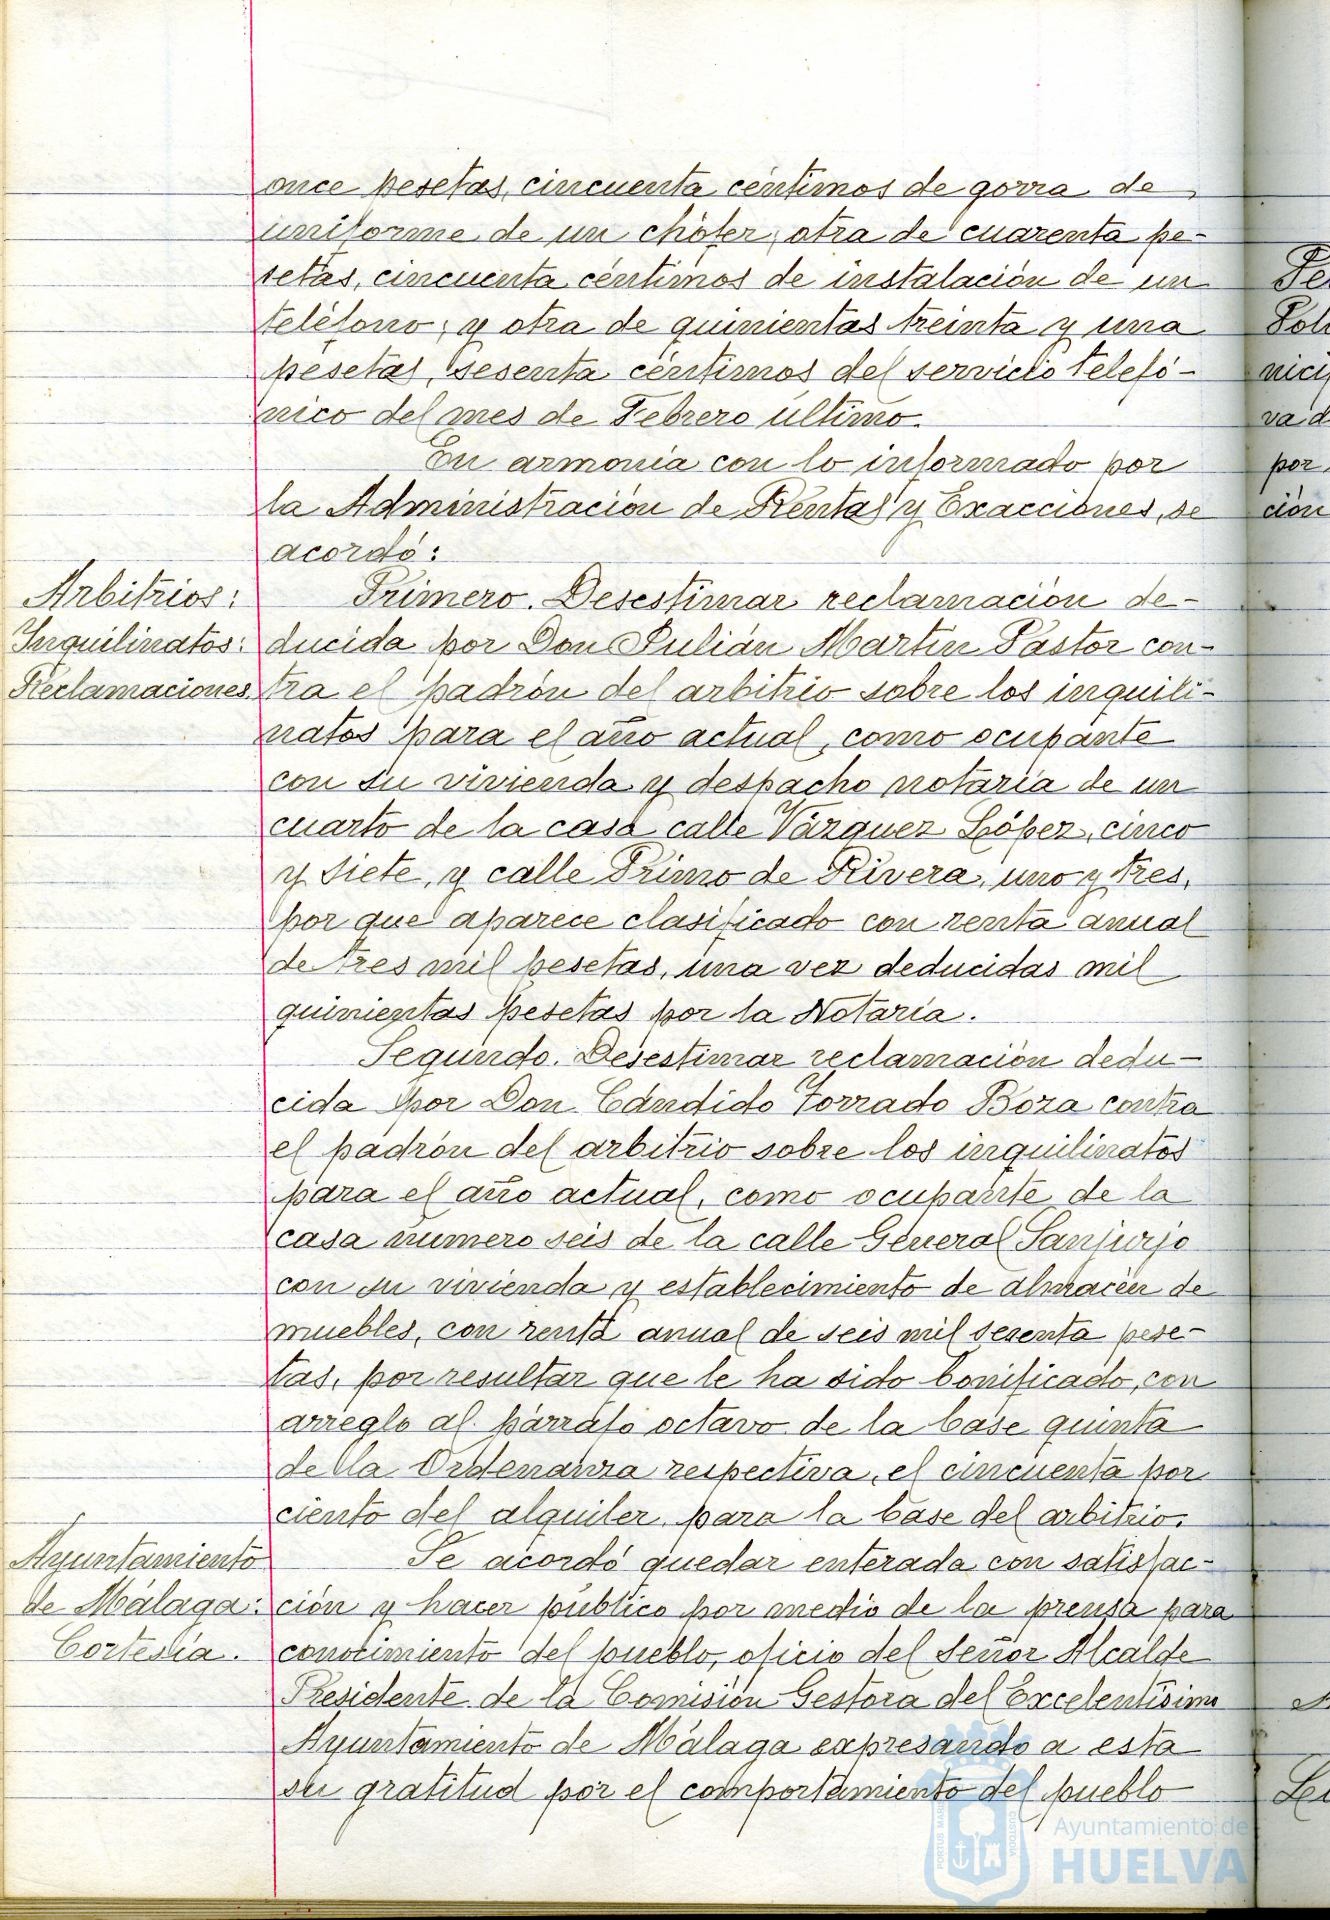 once pesetas, cincuenta céntimos de gorra de
uniforme de un chófer; otra de cuarenta pe-
setas, cincuenta céntimos de instalación de un
teléfono; y otra de quinientas treinta y una
pesetas, sesenta céntimos del servicio telefó-
nico del mes de Febrero último.
En armonía con lo informado por
la Administración de Rentas y Exacciones, se
acordó:
Arbitrios:
Inquilinatos:
Reclamaciones.
Primero. Desestimar reclamación de-
ducida por Don Julián Martín Pastor con-
tra el padrón del arbitrio sobre los inquili-
natos para el año actual, como ocupante
con su vivienda y despacho notaría de un
cuarto de la casa calle Vázquez López, cinco
y siete, y calle Primo de Rivera, uno y tres,
por que aparece clasificado con renta anual
de tres mil pesetas, una vez deducidas mil
quinientas pesetas por la Notaría.
Segundo. Desestimar reclamación dedu-
cida por Don Cándido Forrado Boza contra
el padrón del arbitrio sobre los inquilinatos
para el año actual, como ocupante de la
casa número seis de la calle General Sanjurjo
con su vivienda y establecimiento de almacén de
muebles, con renta anual de seis mil sesenta pese-
tas, por resultar que le ha sido bonificado, con
arreglo al párrafo octavo de la base quinta
de la Ordenanza respectiva, el cincuenta por
ciento del alquiler para la base del arbitrio.
Ayuntamiento
de Málaga:
Cortesía.
Se acordó quedar enterada con satisfac-
ción y hacer público por medio de la prensa para
conocimiento del pueblo, oficio del Señor Alcalde
Presidente de la Comisión Gestora del Excelentísimo
Ayuntamiento de Málaga expresando a esta
su gratitud por el comportamiento del pueblo
Ayuntamiento de
HUELVA
PORTUS MARIS
CUSTODIA
por
ción